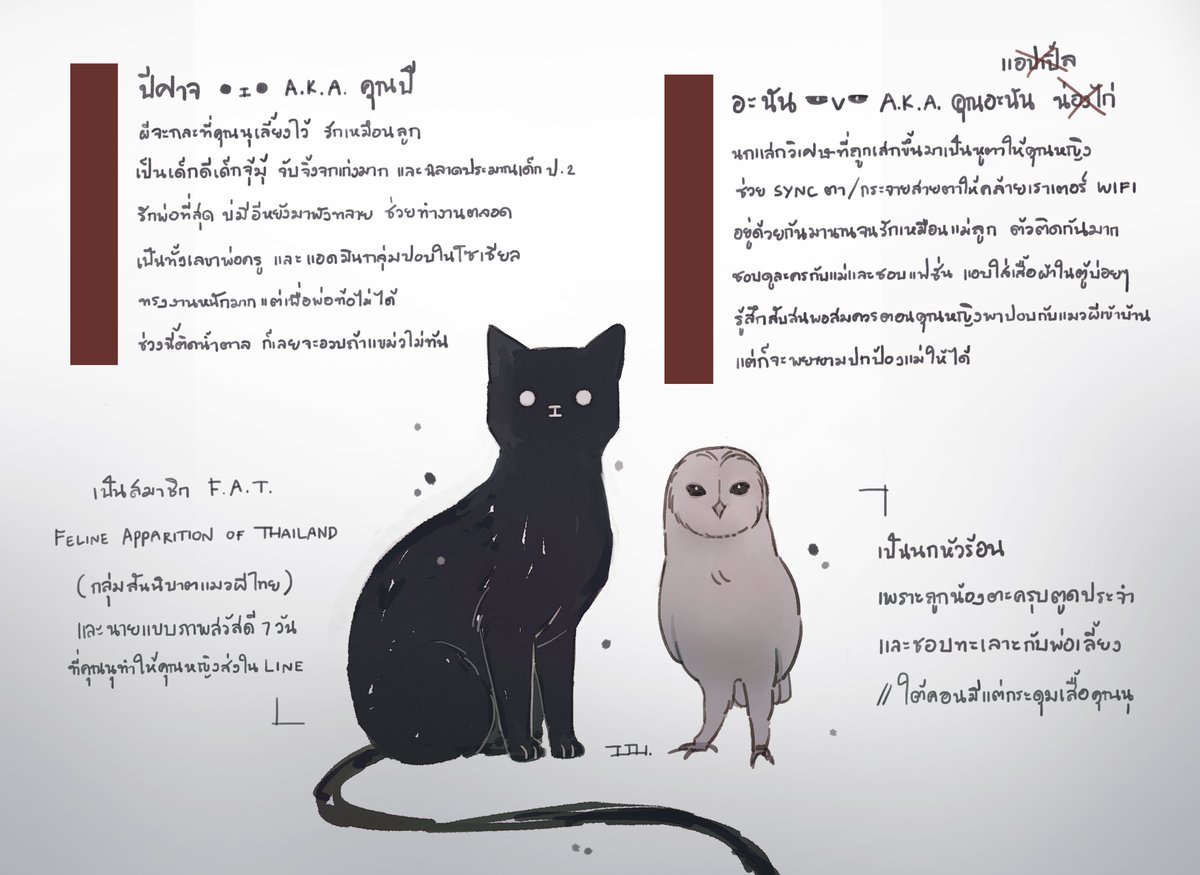 ปีศาจ ●ɪ● A.K.A. คุณปี
ผีจะกละที่คุณนุเลี้ยงไว้ รักเหมือนลูก
เป็นเด็กดีเด็กจุ๊มุ๊ จับจิ้งจกเก่งมาก และฉลาดประมาณเด็ก ป.2
รักพ่อที่สุด บ่มีอีหยังมาพังทลาย ช่วยทำงานตลอด
เป็นทั้งเลขาพ่อครู และแอดมินกลุ่มปอบในโซเชียล
ทรงงานหนักมาก แต่เพื่อพ่อท้อไม่ได้
ช่วงนี้ติดน้ำตาล ก็เลยจะอวบถ้าแขม่วไม่ทัน
แอปเปิ้ล
อะนัน v A.K.A. คุณอะนัน น่องไก่
นกแสกวิเศษที่ถูกเสกขึ้นมาเป็นหูตาให้คุณหญิง
ช่วย SYNC ตา/กระจายสายตาให้คล้ายเราเตอร์ WIFI
อยู่ด้วยกันมานานจนรักเหมือนแม่ลูก ตัวติดกันมาก
ชอบดูละครกับแม่และชอบแฟชั่น แอบใส่เสื้อผ้าในตู้บ่อยๆ
รู้สึกสับสนพอสมควรตอนคุณหญิงพาปอบกับแมวผีเข้าบ้าน
แต่ก็จะพยายามปกป้องแม่ให้ได้
เป็นสมาชิก F.A.T.
FELINE APPARITION OF THAILAND
(กลุ่มสันนิบาตแมวผีไทย)
และนายแบบภาพสวัสดี 7 วัน
ที่คุณนุทำให้คุณหญิงส่งใน LINE
เป็นนกหัวร้อน
เพราะถูกน้องตะครุบตูดประจำ
และชอบทะเลาะกับพ่อเลี้ยง
// ใต้คอนมีแต่กระดุมเสื้อคุณนุ